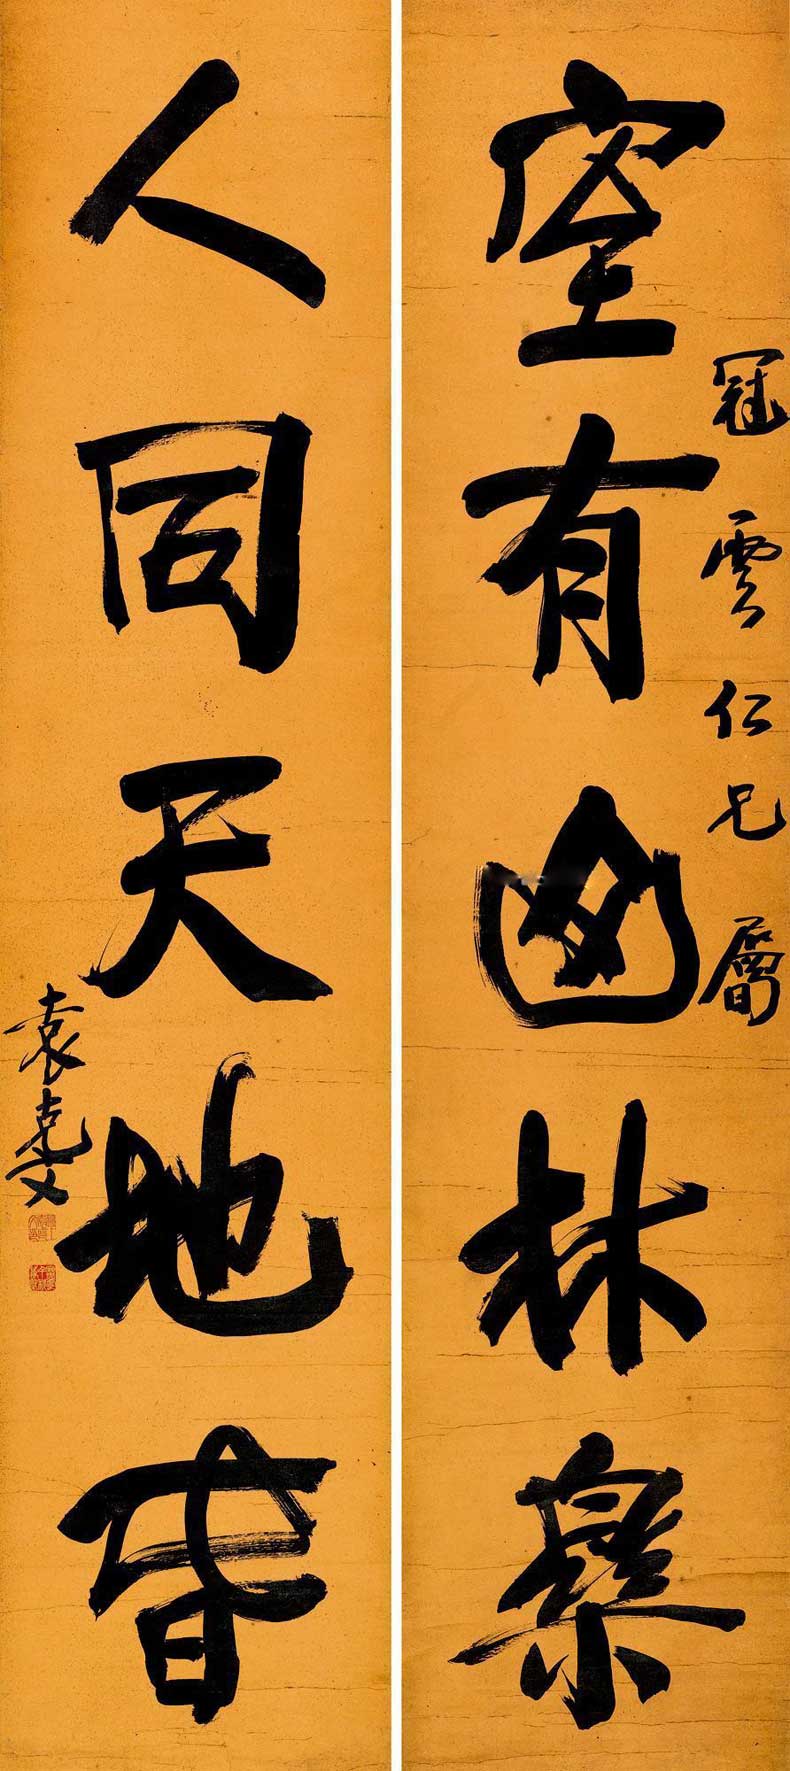 冠雲仁兄屬
室有山林樂
人同天地春
袁克文